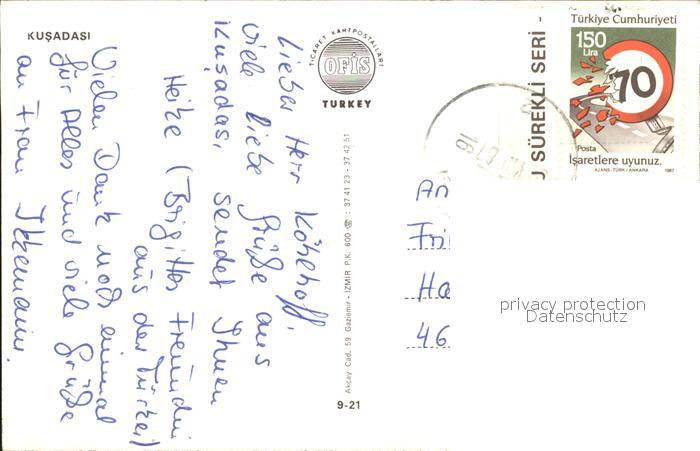 KUŞADASI
TICARET KARTPOSTALLARI
OFİS
TURKEY
Lieber Herr Köhlhoff,
viele liebe Grüße aus
Kuşadası sendet Ihnen
Heike (Brigittes Freundin
aus der Türkei)
Vielen Dank noch einmal
für Alles und viele Grüße
an Frau
Akcay Cad. 59 Gaziemir - İZMİR P.K. 600 ☎ : 37 41 23 - 37 42 51
9-21
U SÜREKLİ SERİ -
Türkiye Cumhuriyeti
150
Lira
70
Posta
İşaretlere uyunuz.
AJANS-TÜRK / ANKARA 1987
An
Ha
46
privacy protection
Datenschutz